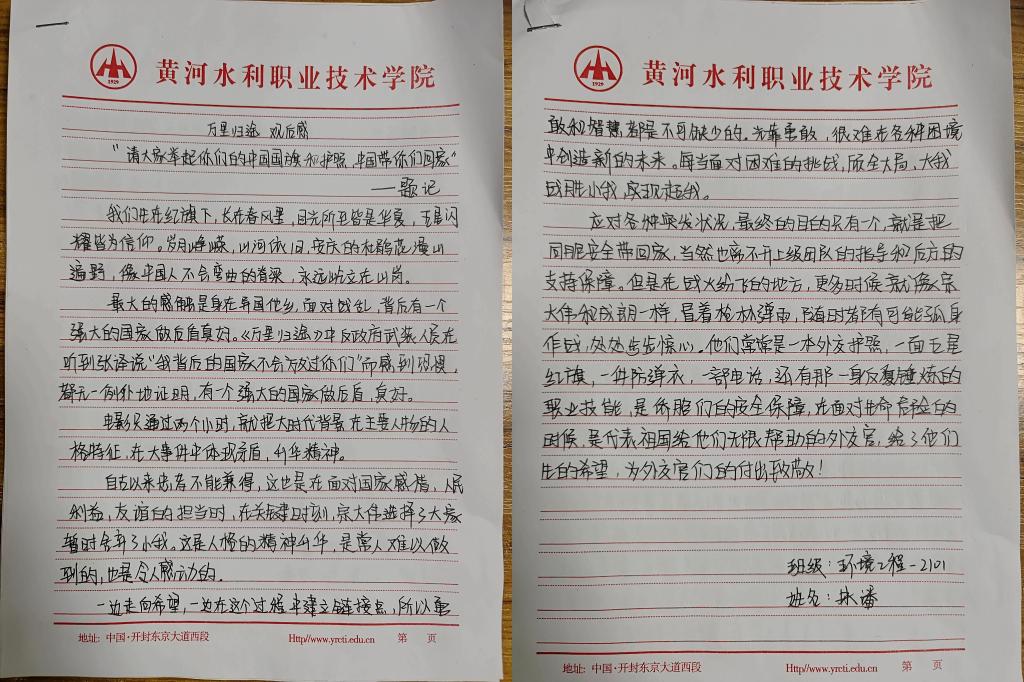 1929
黄河水利职业技术学院
万里归途 观后感
"请大家举起你们的中国国旗和护照,中国带你们回家"
——题记
我们生在红旗下,长在春风里,目光所至皆是华夏,五星闪
耀皆为信仰。岁月峥嵘,山河依旧,安庆的杜鹃花漫山
遍野,像中国人不会弯曲的脊梁,永远屹立在山岗。
最大的感触是身在异国他乡,面对战乱,背后有一个
强大的国家做后盾真好。《万里归途》中反政府武装人员在
听到张译说"我背后的国家不会放过你们"而感到恐惧,
都无一例外地证明,有一个强大的国家做后盾,真好。
电影只通过两个小时,就把大时代背景在主要人物的人
格特征,在大事件中体现矛盾,升华精神。
自古以来忠孝不能兼得,这也是在面对国家感情,人民
利益,友谊的担当时,在关键时刻,宗大伟选择了大家
暂时舍弃了小我。这是人格的精神升华,是常人难以做
到的,也是令人感动的。
一边走向希望,一边在这个过程中建立链接点,所以勇
地址: 中国·开封东京大道西段 Http//www.yrcti.edu.cn 第 页
黄河水利职业技术学院
1929
敢和智慧都是不可缺少的。光靠勇敢,很难在各种困境
中创造新的未来。每当面对困难的挑战,顾全大局,大我
战胜小我,实现超我。
应对各种突发状况,最终的目的只有一个,就是把
同胞安全带回家,当然也离不开上级团队的指导和后方的
支持保障。但是在战火纷飞的地方,更多时候就像宗
大伟和成朗一样,冒着枪林弹雨,随时都有可能孤身
作战,处处步步惊心。他们常常是一本外交护照,一面五星
红旗,一件防弹衣,一部电话,还有那一身反复锤炼的
职业技能,是侨胞们的安全保障,在面对生命危险的
时候,是代表祖国给他们无限帮助的外交官,给了他们
生的希望,为外交官们的付出致敬!
班级:环境工程-2101
姓名:林潘
地址: 中国·开封东京大道西段 Http//www.yrcti.edu.cn 第 页